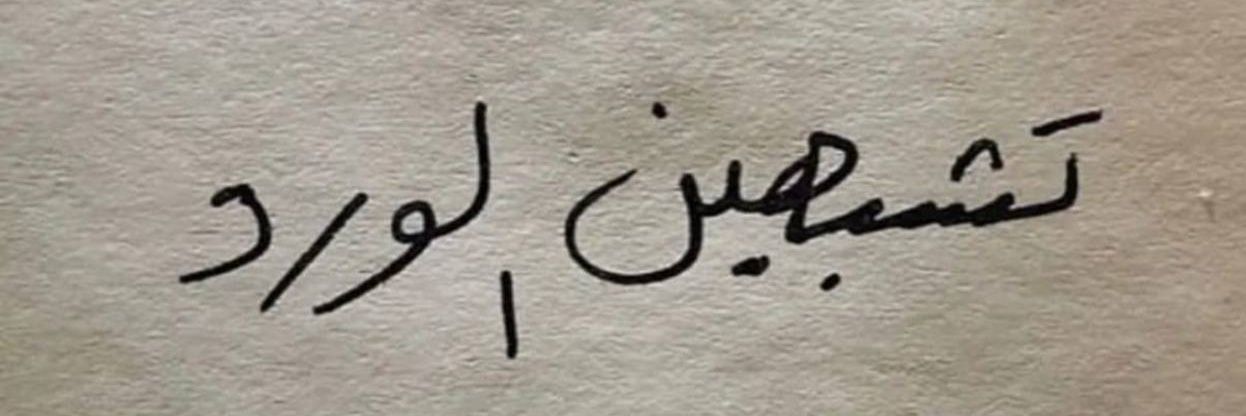 تشبهين الورد